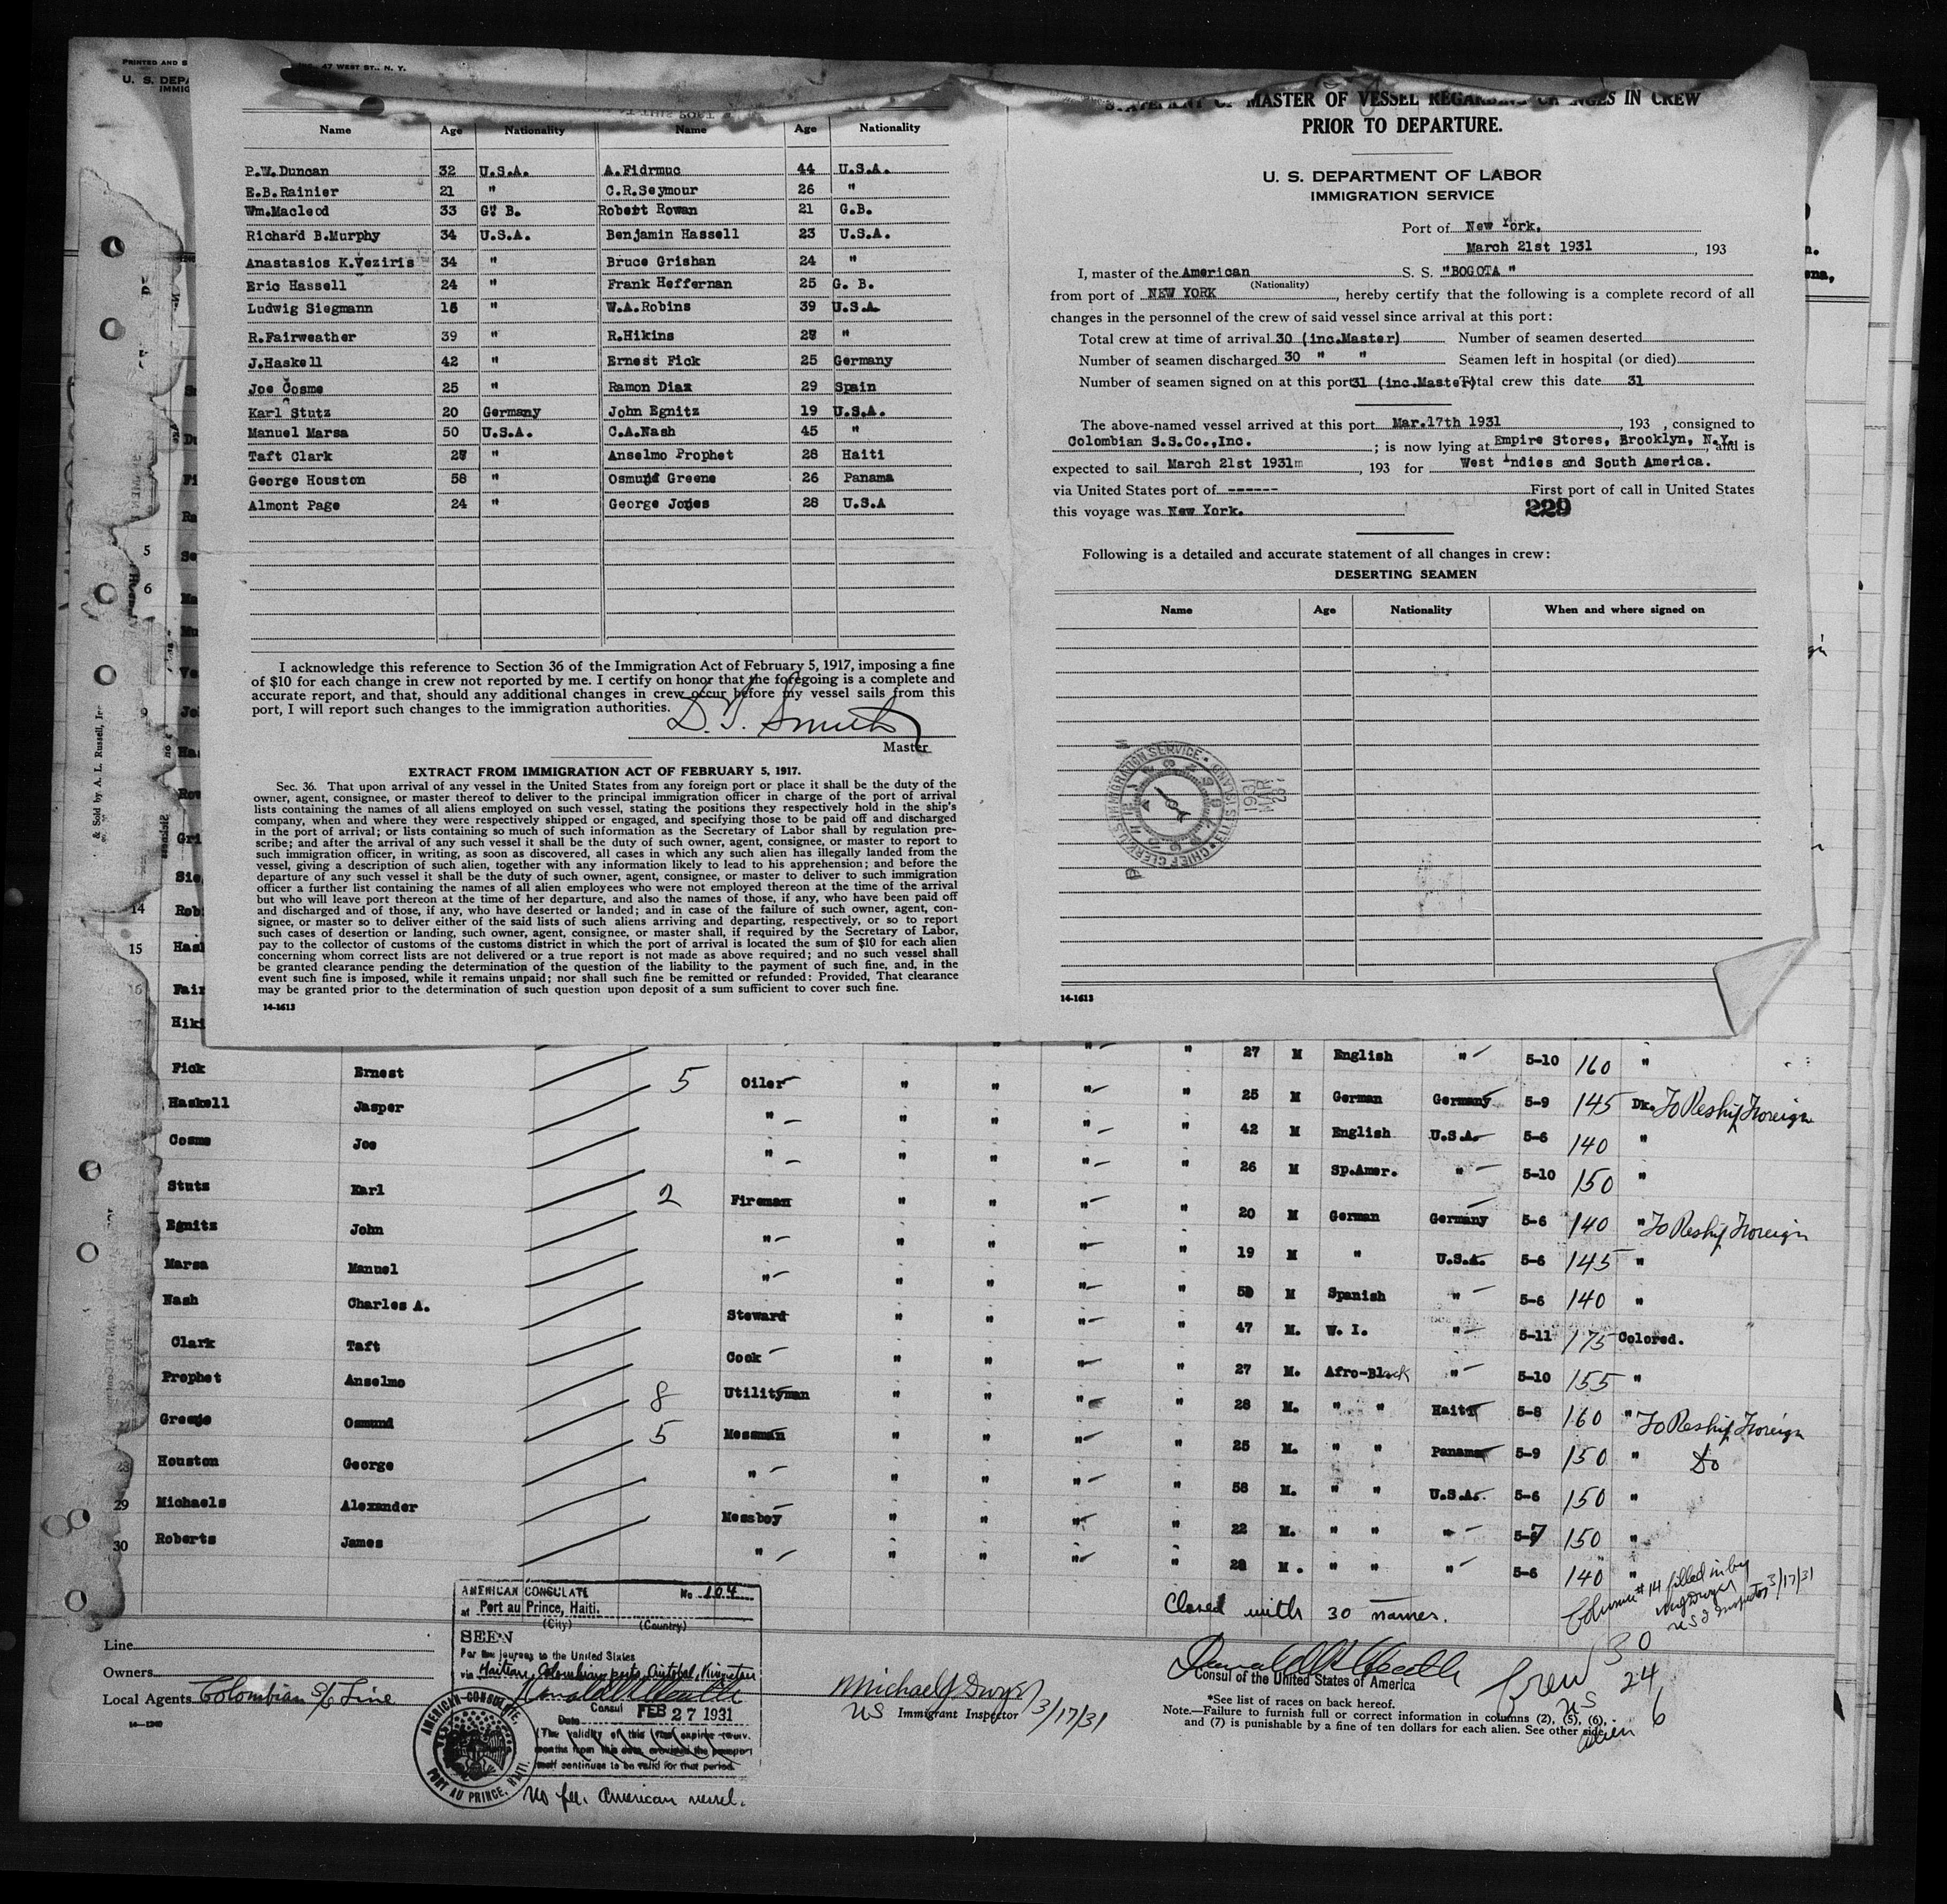 PRINTED AND S
U. S. DEPA
IMMIG
47 WEST ST., N. Y.
Name Age Nationality Name Age Nationality
P.W.Duncan 32 U.S.A. A.Fidrmuc 44 U.S.A.
E.B.Rainier 21 " C.R.Seymour 26 "
Wm.Macleod 33 G. B. Robert Rowan 21 G.B.
Richard B.Murphy 34 U.S.A. Benjamin Hassell 23 U.S.A.
Anastasios K.Veziris 34 " Bruce Grishan 24 "
Eric Hassell 24 " Frank Heffernan 25 G. B.
Ludwig Siegmann 16 " W.A.Robins 39 U.S.A.
R.Fairweather 39 " R.Hikins 27 "
J.Haskell 42 " Ernest Fick 25 Germany
Joe Cosme 25 " Ramon Diaz 29 Spain
Karl Stutz 20 Germany John Egnitz 19 U.S.A.
Manuel Marsa 50 U.S.A. C.A.Nash 45 "
Taft Clark 27 " Anselmo Prophet 28 Haiti
George Houston 58 " Osmund Greene 26 Panama
Almont Page 24 " George Jones 28 U.S.A
I acknowledge this reference to Section 36 of the Immigration Act of February 5, 1917, imposing a fine
of $10 for each change in crew not reported by me. I certify on honor that the foregoing is a complete and
accurate report, and that, should any additional changes in crew occur before my vessel sails from this
port, I will report such changes to the immigration authorities.
D. T. Smith
Master
EXTRACT FROM IMMIGRATION ACT OF FEBRUARY 5, 1917.
Sec. 36. That upon arrival of any vessel in the United States from any foreign port or place it shall be the duty of the
owner, agent, consignee, or master thereof to deliver to the principal immigration officer in charge of the port of arrival
lists containing the names of all aliens employed on such vessel, stating the positions they respectively hold in the ship's
company, when and where they were respectively shipped or engaged, and specifying those to be paid off and discharged
in the port of arrival; or lists containing so much of such information as the Secretary of Labor shall by regulation pre-
scribe; and after the arrival of any such vessel it shall be the duty of such owner, agent, consignee, or master to report to
such immigration officer, in writing, as soon as discovered, all cases in which any such alien has illegally landed from the
vessel, giving a description of such alien, together with any information likely to lead to his apprehension; and before the
departure of any such vessel it shall be the duty of such owner, agent, consignee, or master to deliver to such immigration
officer a further list containing the names of all alien employees who were not employed thereon at the time of the arrival
but who will leave port thereon at the time of her departure, and also the names of those, if any, who have been paid off
and discharged and of those, if any, who have deserted or landed; and in case of the failure of such owner, agent, con-
signee, or master so to deliver either of the said lists of such aliens arriving and departing, respectively, or so to report
such cases of desertion or landing, such owner, agent, consignee, or master shall, if required by the Secretary of Labor,
pay to the collector of customs of the customs district in which the port of arrival is located the sum of $10 for each alien
concerning whom correct lists are not delivered or a true report is not made as above required; and no such vessel shall
be granted clearance pending the determination of the question of the liability to the payment of such fine, and, in the
event such fine is imposed, while it remains unpaid; nor shall such fine be remitted or refunded: Provided, That clearance
may be granted prior to the determination of such question upon deposit of a sum sufficient to cover such fine.
14-1613
STATEMENT OF MASTER OF VESSEL REGARDING CHANGES IN CREW
PRIOR TO DEPARTURE.
U. S. DEPARTMENT OF LABOR
IMMIGRATION SERVICE
Port of New York.
March 21st 1931, 193
I, master of the American S. S. "BOGOTA"
(Nationality)
from port of NEW YORK, hereby certify that the following is a complete record of all
changes in the personnel of the crew of said vessel since arrival at this port:
Total crew at time of arrival 30 (inc.Master) Number of seamen deserted
Number of seamen discharged 30 " " Seamen left in hospital (or died)
Number of seamen signed on at this port 31 (inc.Master) Total crew this date 31
The above-named vessel arrived at this port Mar.17th 1931, 193 , consigned to
Colombian S.S.Co.,Inc. ; is now lying at Empire Stores, Brooklyn, N.Y. and is
expected to sail March 21st 1931m, 193 for West Indies and South America.
via United States port of ------ First port of call in United States
this voyage was New York. 229
Following is a detailed and accurate statement of all changes in crew:
DESERTING SEAMEN
Name Age Nationality When and where signed on
CHIEF CLERK U.S. IMMIGRATION SERVICE ELLIS ISLAND
MAR 26 1931
14-1613
& Sold by A. L. Russell, In
5
6
9
14
15
16
27 M English " 5-10 160 "
Fick Ernest 5 Oiler " " " " 25 M German Germany 5-9 145 Dk. To Reship Foreign
Haskell Jasper " " " " " 42 M English U.S.A. 5-6 140 "
Cosme Joe " " " " " 26 M Sp.Amer. " 5-10 150 "
Stutz Karl 2 Fireman " " " " 20 M German Germany 5-6 140 " To Reship Foreign
Egnitz John " " " " " 19 M " U.S.A. 5-6 145 "
Marsa Manuel " " " " " 50 M Spanish " 5-6 140 "
Nash Charles A. Steward " " " " 47 M. W. I. " 5-11 175 Colored.
Clark Taft Cook " " " " 27 M. Afro-Black " 5-10 155 "
Prophet Anselmo 8 Utilityman " " " " 28 M. " " Haiti 5-8 160 " To Reship Foreign
Greene Osmund 5 Messman " " " " 25 M. " " Panama 5-9 150 " Do
28 Houston George " " " " " 58 M. " " U.S.A. 5-6 150 "
29 Michaels Alexander Messboy " " " " 22 M. " " " 5-7 150 "
30 Roberts James " " " " " 28 M. " " " 5-6 140 "
Closed with 30 names.
Column #14 filled in by
US I Inspector 3/17/31
AMERICAN CONSULATE No 104
at Port au Prince, Haiti.
(City) (Country)
SEEN
For the journey to the United States
via Haitian, Colombian ports, Cristobal, Kingston
Donald R. Heath
Consul FEB 27 1931
Date
(The validity of this visa expires twelve
months from this date, provided the passport
itself continues to be valid for that period.
AMERICAN CONSULATE, PORT AU PRINCE, HAITI.
No fee. American vessel.
Line
Owners
Local Agents Colombian S/S Line
14-1240
Michael J Dwyer 3/17/31
US Immigrant Inspector
Donald R. Heath
Consul of the United States of America
*See list of races on back hereof.
Note.—Failure to furnish full or correct information in columns (2), (5), (6),
and (7) is punishable by a fine of ten dollars for each alien. See other side.
Crew 30
US 24
Alien 6